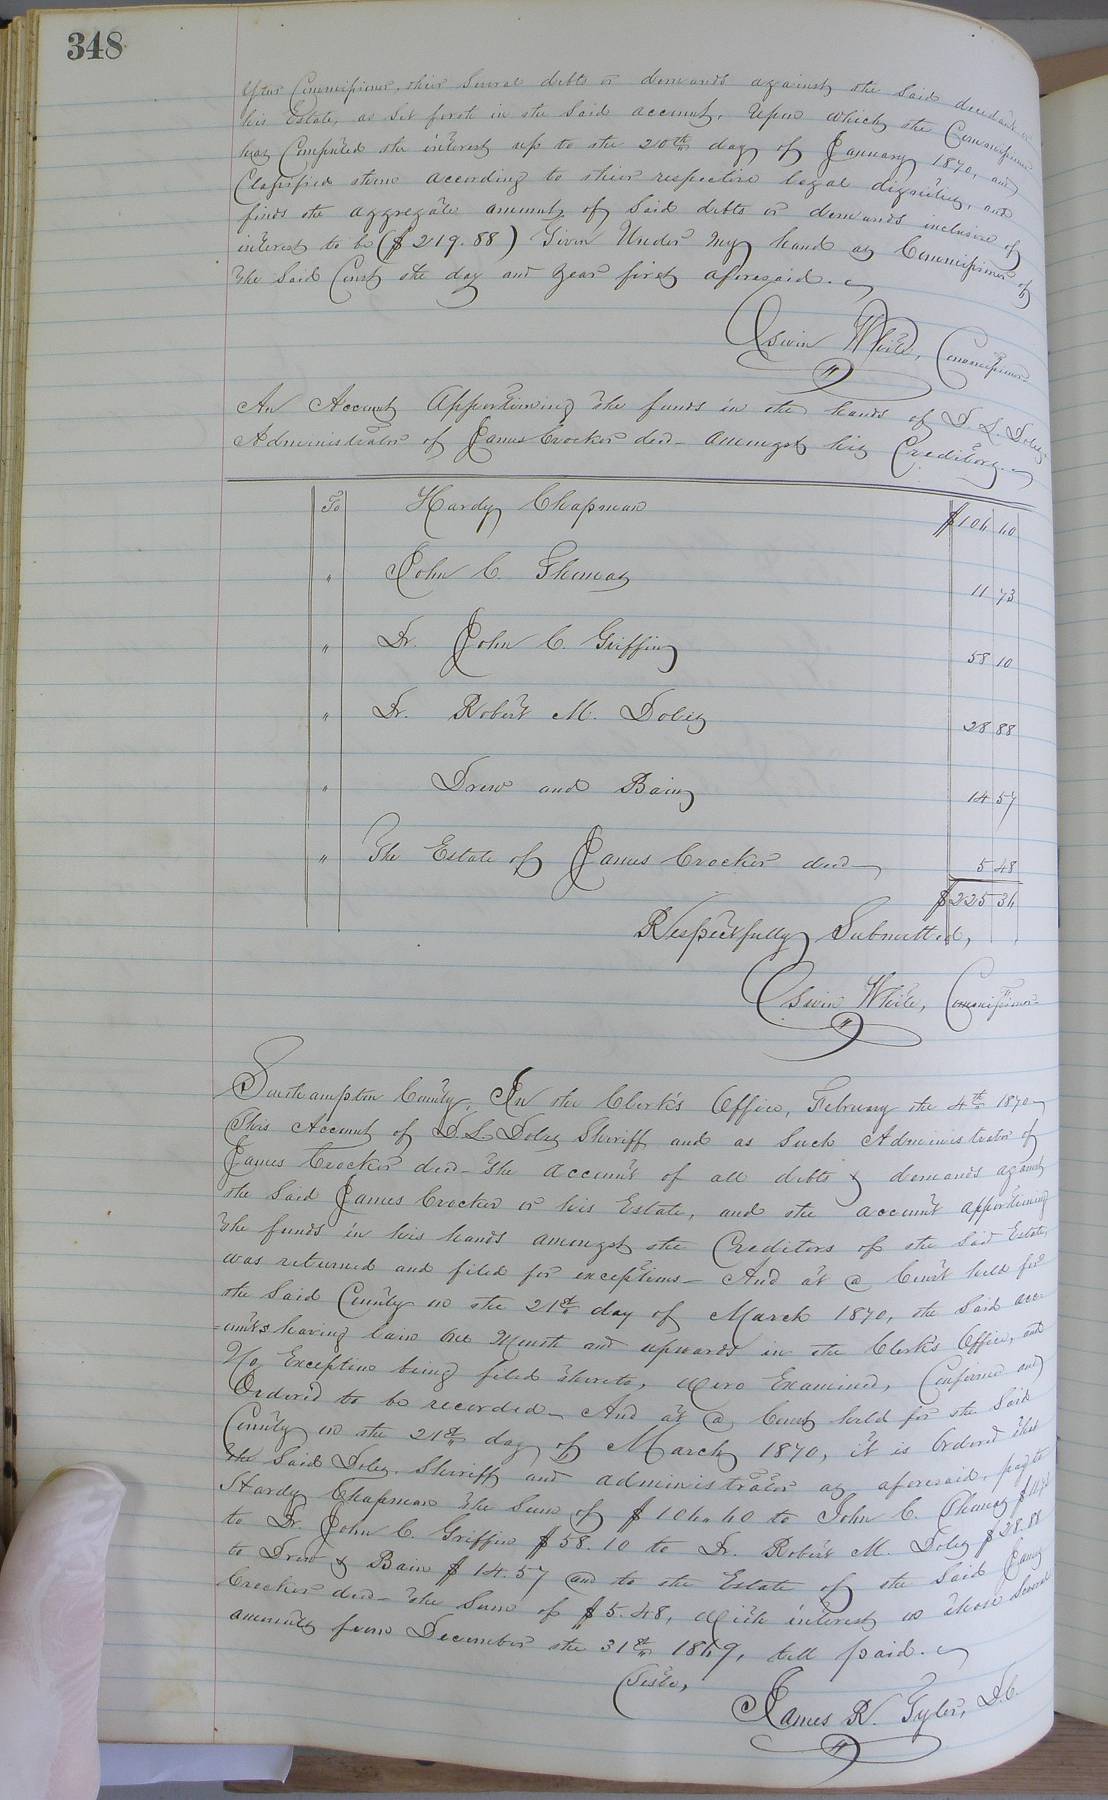 348
after Commissioner, their Several debts or demands against the Said decedant or
his Estate, as Set forth in the Said account, Upon which the Commissioner
has Computed the interest up to the 20th day of January 1870, and
Classified them according to their respective legal dignities, and
finds the aggregate amount of Said debts or demands inclusive of
interest to be ($219.88) Given Under my hand as Commissioner of
the Said Court the day and year first aforesaid.
White, Commissioner
An Account Apportioning the funds in the hands of
Administrator of James Crocker decd- amongst his Creditors.
To Hardy Chapman $106 60
" John C. 11 73
" Dr. John C. Griffin 58 10
" Dr. Robert M. 28 88
" Drew and Bain 14 57
" The Estate of James Crocker decd 5 48
$225 36
Respectfully Submitted,
White, Commissioner
Southampton County, In the Clerk's Office, February the 4th 1870
This Account of Sheriff and as Such Administrator of
James Crocker decd- the account of all debts & demands against
the Said James Crocker or his Estate, and the account apportioning
the funds in his hands amongst the Creditors of the Said Estate,
was returned and filed for exceptions- And at a Court held for
the Said County on the 21st day of March 1870, the Said acc-
=ounts having lain One Month and upwards in the Clerk's Office, and
No Exception being filed thereto, were Examined, Confirmed and
Ordered to be recorded- And at a Court held for the Said
County on the 21st day of March 1870, it is Ordered that
the Said Sheriff and administrator as aforesaid, pay to
Hardy Chapman the Sum of $106.60 to John C.
to Dr. John C. Griffin $58.10 to Dr. Robert M. $28.88
to Drew & Bain $14.57 and to the Estate of the Said James
Crocker decd- the Sum of $5.48, with interest on those Several
amounts from December the 31st 1869, till paid.
Teste,
James R. Tyler, D.C.